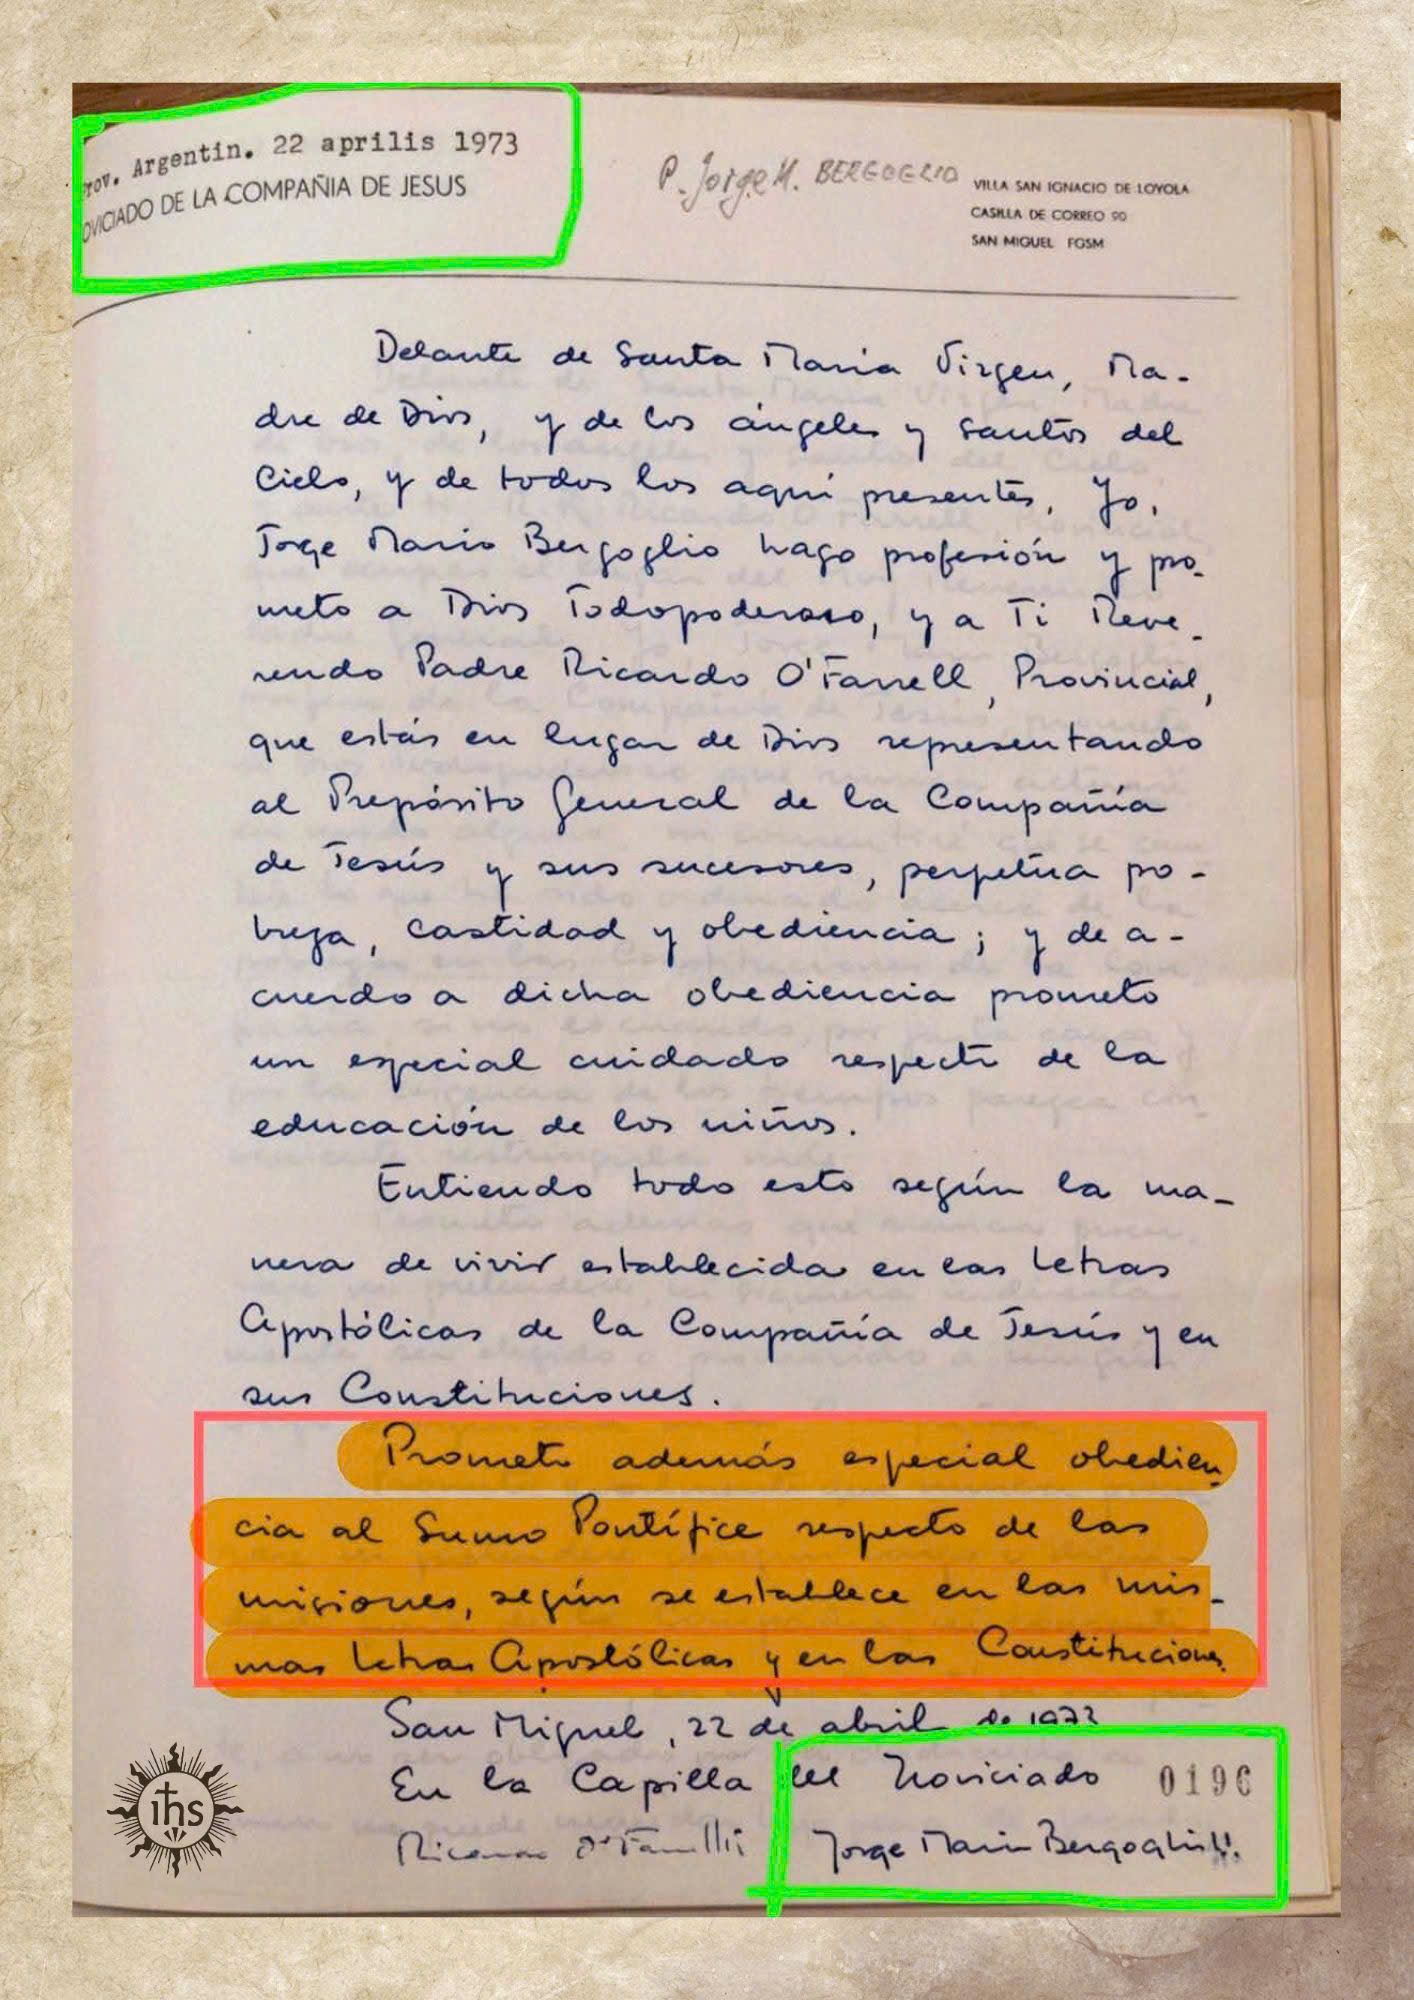 Prov. Argentin. 22 aprilis 1973
NOVICIADO DE LA COMPAÑIA DE JESUS
P. Jorge M. BERGOGLIO
VILLA SAN IGNACIO DE LOYOLA
CASILLA DE CORREO 90
SAN MIGUEL FGSM
Delante de Santa María Virgen, Ma-
dre de Dios, y de los ángeles y santos del
Cielo, y de todos los aquí presentes, Yo,
Jorge Mario Bergoglio hago profesión y pro-
meto a Dios Todopoderoso, y a Ti Reve-
rendo Padre Ricardo O'Farrell, Provincial,
que estás en lugar de Dios representando
al Prepósito General de la Compañía
de Jesús y sus sucesores, perpetua po-
breza, castidad y obediencia; y de a-
cuerdo a dicha obediencia prometo
un especial cuidado respecto de la
educación de los niños.
Entiendo todo esto según la ma-
nera de vivir establecida en las Letras
Apostólicas de la Compañía de Jesús y en
sus Constituciones.
Prometo además especial obedien-
cia al Sumo Pontífice respecto de las
misiones, según se establece en las mis-
mas Letras Apostólicas y en las Constituciones.
San Miguel, 22 de abril de 1973
En la Capilla del Noviciado
0196
Ricardo O'Farrell sj
Jorge Mario Bergoglio sj.
ihs